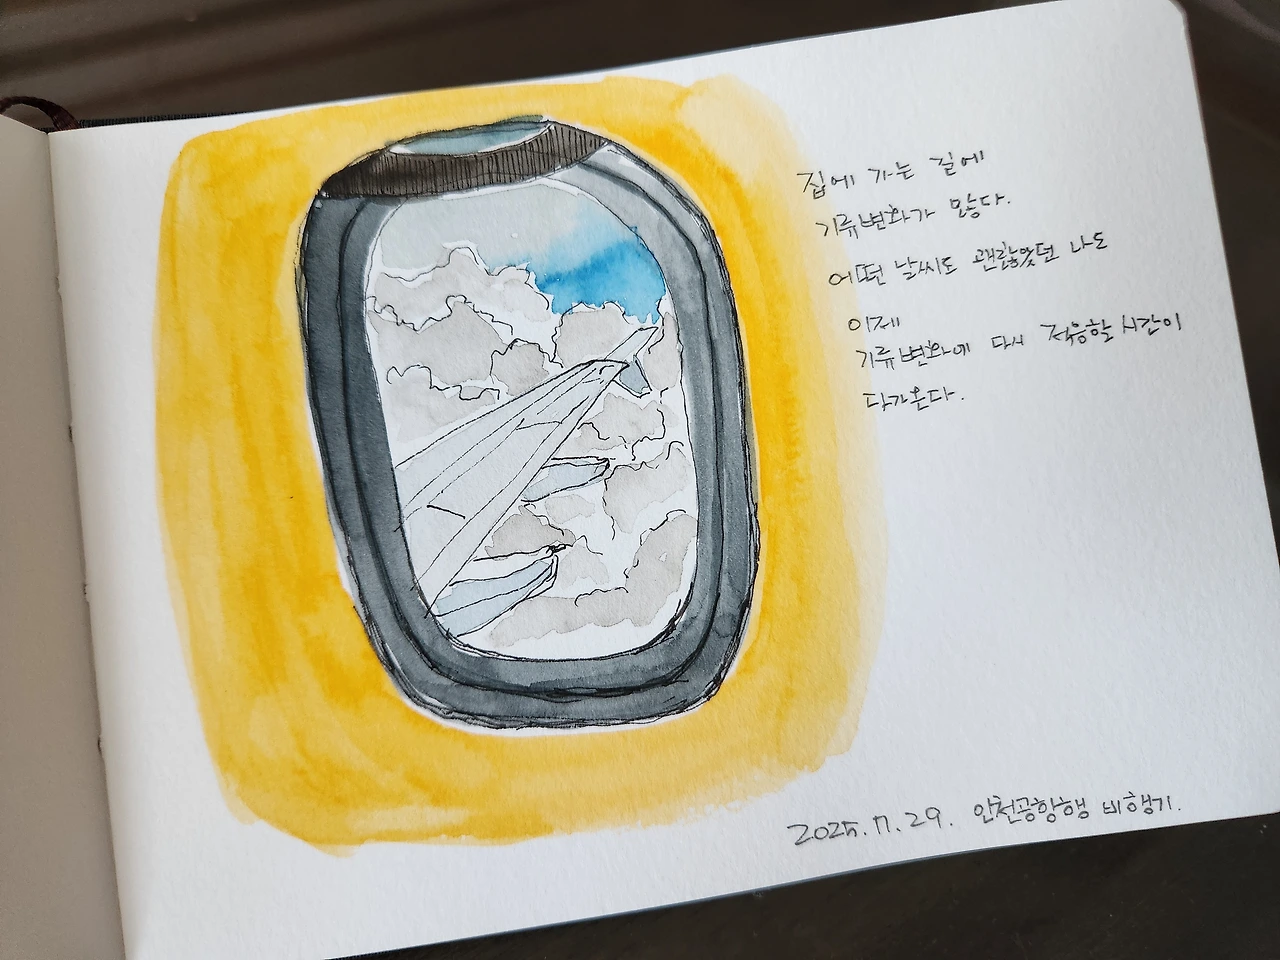 집에 가는 길에
기류변화가 많다.
어떤 날씨도 괜찮았던 나도
이제
기류변화에 다시 적응할 시간이
다가온다.
2025.7.29. 인천공항행 비행기.